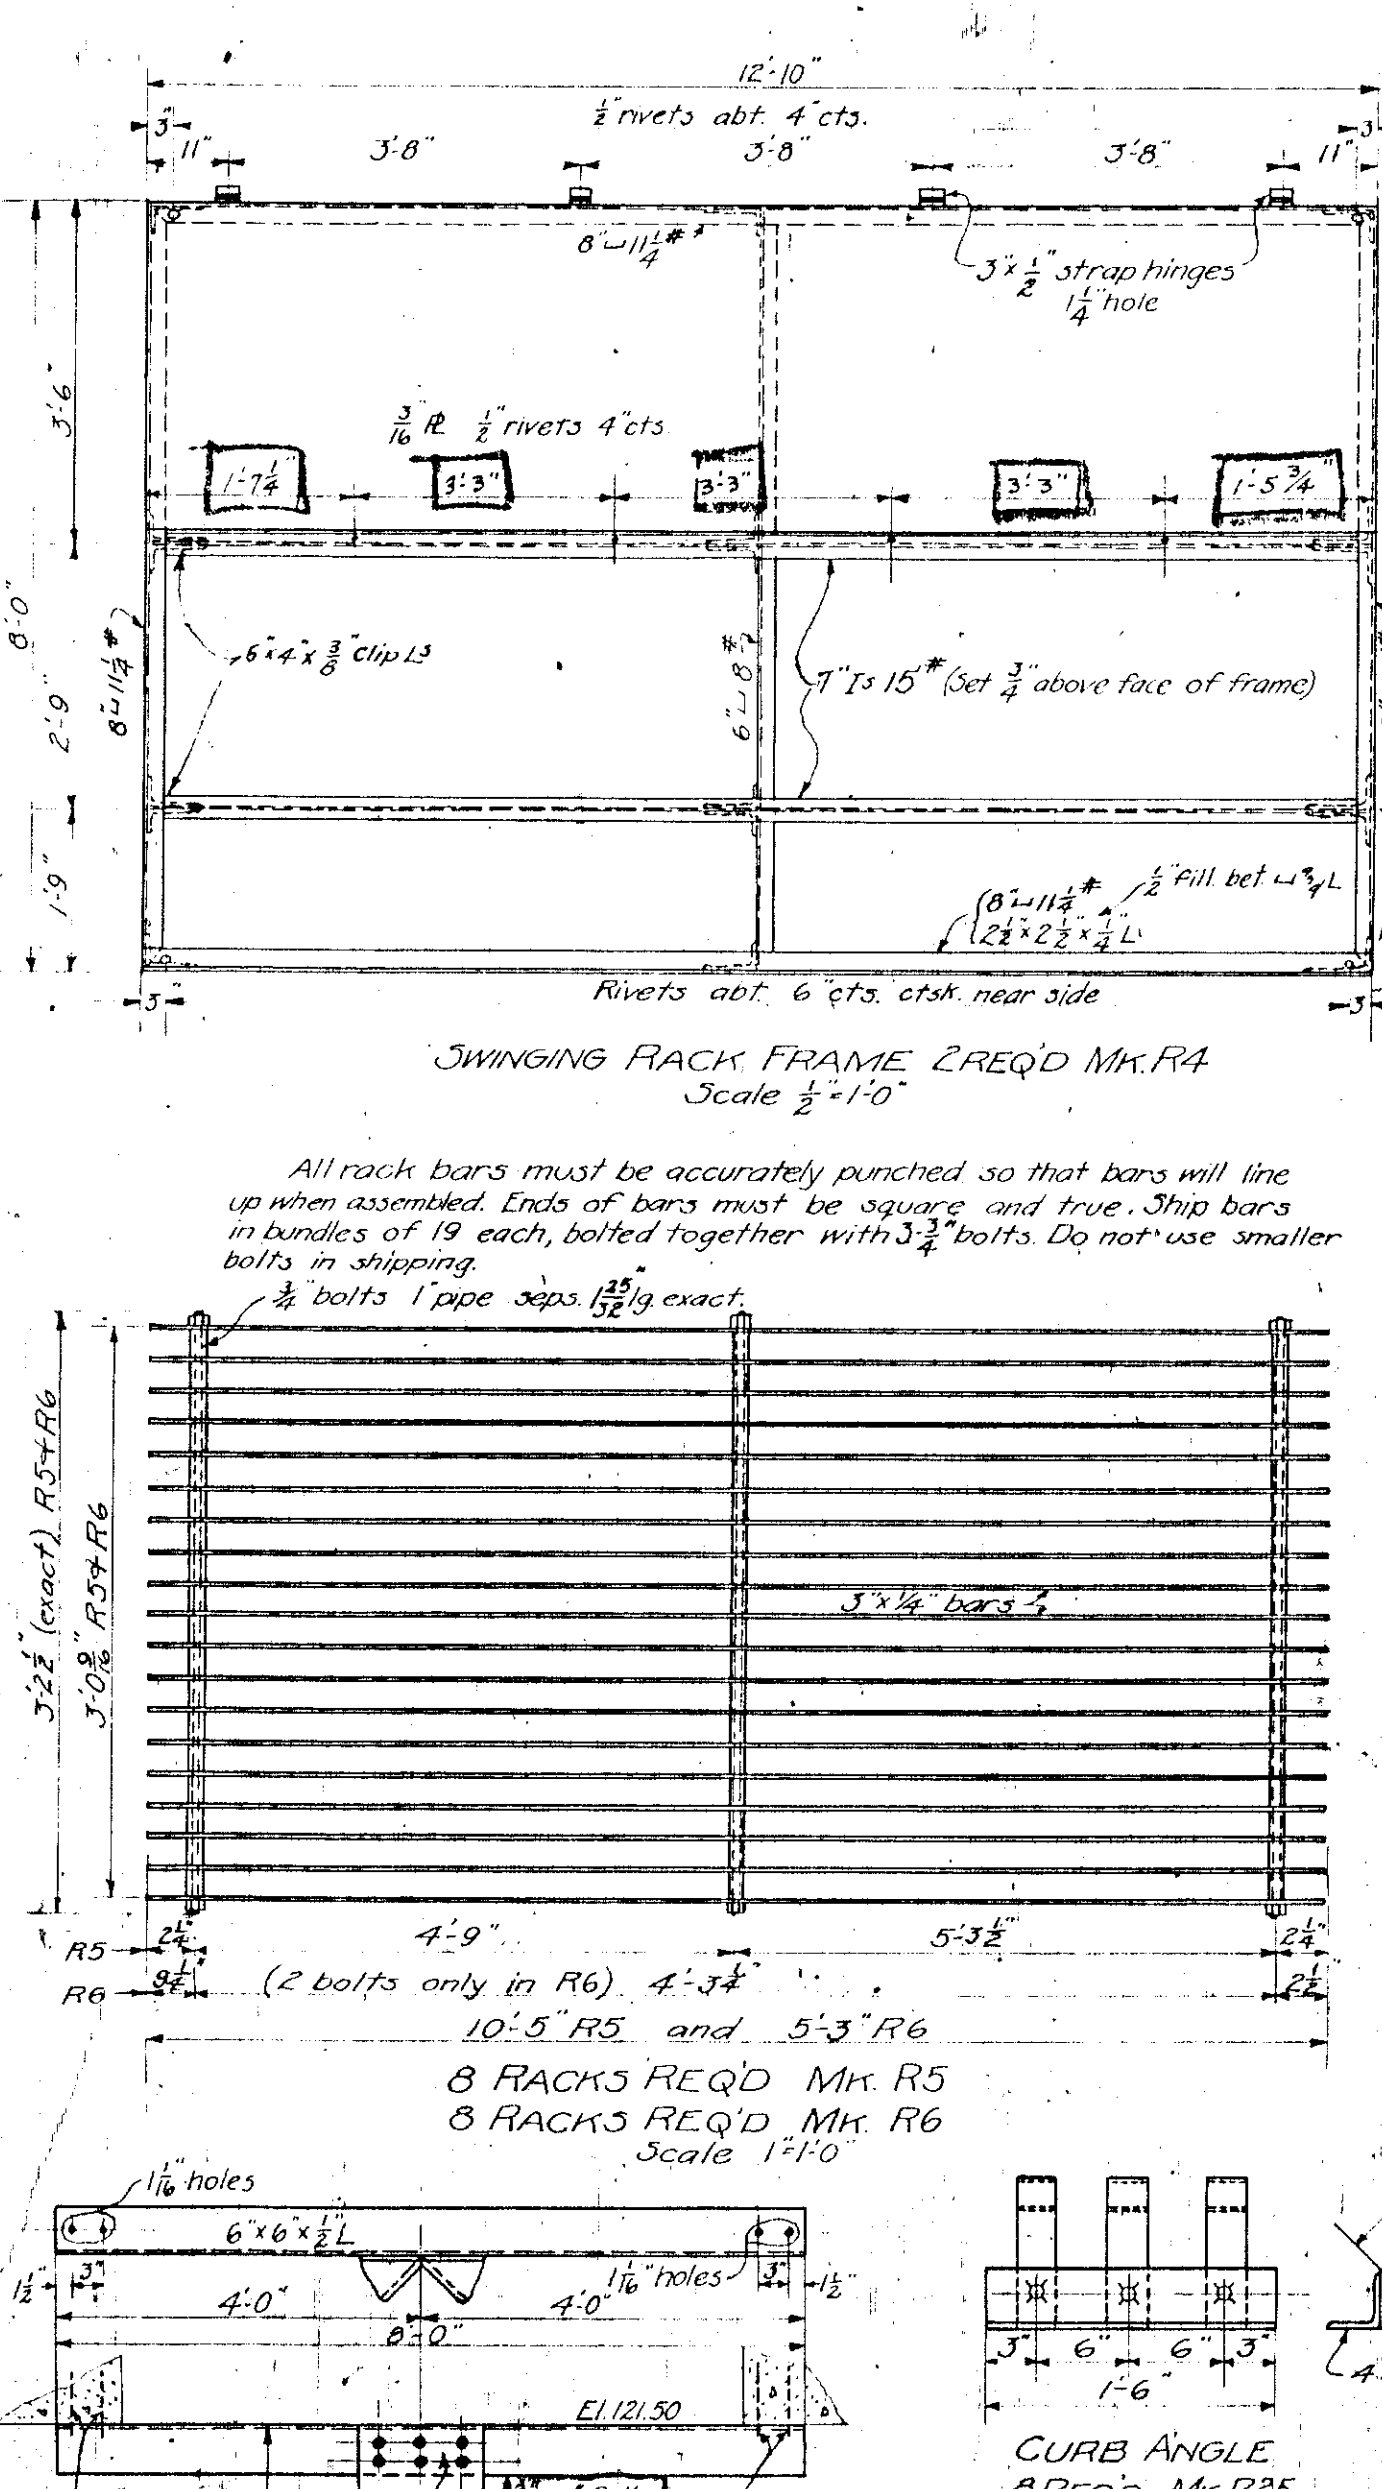 12'-10"
1/2" rivets abt. 4" cts.
3" 3
11" 3'-8" 3'-8" 3'-8" 11"
8"⊔11 1/4#
3"x 1/2" strap hinges
1 1/4" hole
3'-6"
3/16" PL 1/2" rivets 4" cts.
1'-7 1/4" 3'-3" 3'-3" 3'-3" 1'-5 3/4"
8'-0"
8"⊔11 1/4#
6"x4"x 3/8" clip Ls
6"⊔8#
7" Is 15# (Set 3/4" above face of frame)
2'-9"
1'-9"
8"⊔11 1/4# 1/2" fill. bet. ⊔ & L
2 1/2"x2 1/2"x 1/4" L
3" Rivets abt. 6" cts. ctsk. near side 3
SWINGING RACK FRAME 2 REQ'D MK. R4
Scale 1/2"=1'-0"
All rack bars must be accurately punched so that bars will line
up when assembled. Ends of bars must be square and true. Ship bars
in bundles of 19 each, bolted together with 3-3/4" bolts. Do not use smaller
bolts in shipping.
3/4" bolts 1" pipe seps. 1 25/32" lg. exact.
3'-2 1/2" (exact) R5 & R6
3'-0 9/16" R5 & R6
3"x1/4" bars
R5 2 1/4" 4'-9" 5'-3 1/2" 2 1/4"
R6 9 1/4" (2 bolts only in R6) 4'-3 1/4" 2 1/2"
10'-5" R5 and 5'-3" R6
8 RACKS REQ'D MK. R5
8 RACKS REQ'D MK. R6
Scale 1"=1'-0"
1 1/16" holes
6"x6"x 1/2" L
1 1/2" 3" 1 1/16" holes 3" 1 1/2"
4'-0" 4'-0"
8'-0"
El. 121.50
3" 6" 6" 3"
1'-6"
4
CURB ANGLE